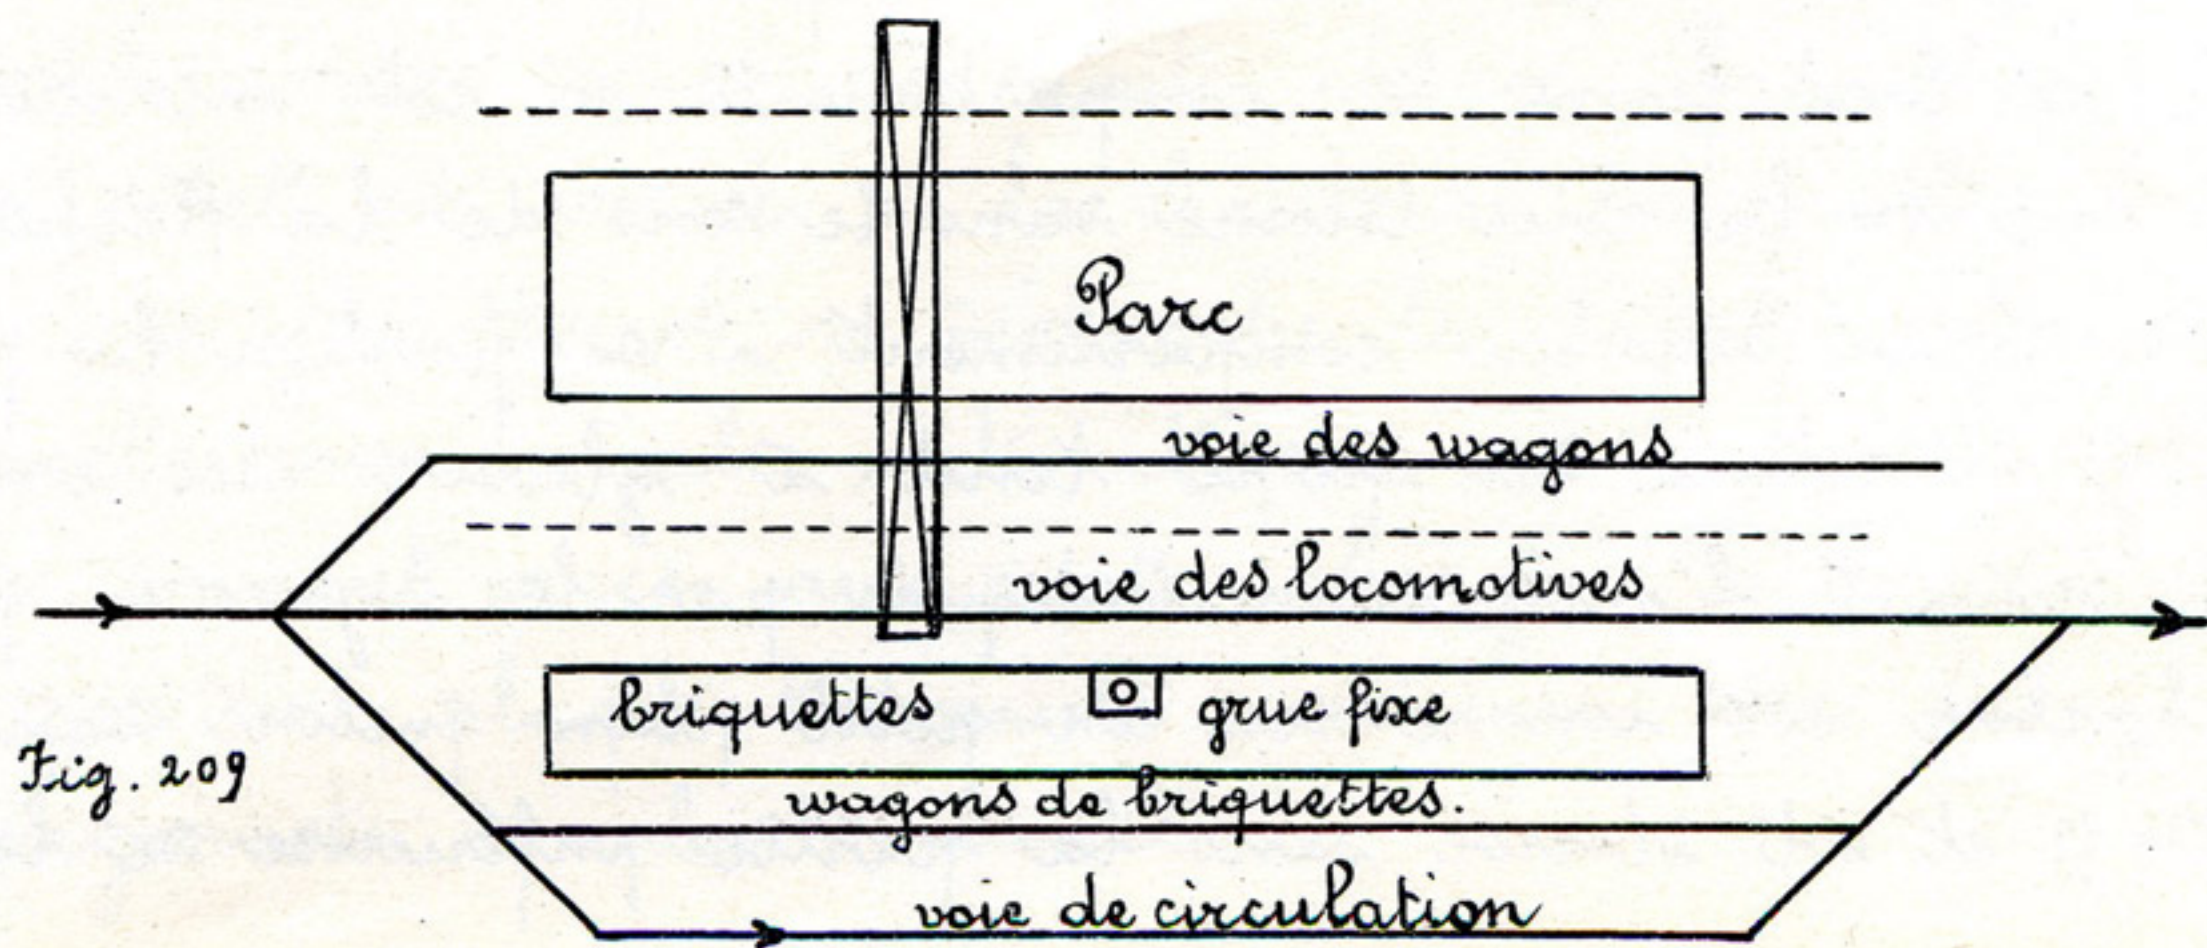 Parc
voie des wagons
voie des locomotives
briquettes
grue fixe
Fig. 209
wagons de briquettes.
voie de circulation